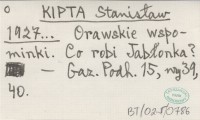 KIPTA Stanisław
1927... Orawskie wspo-
minki. Co robi Jabłonka?
— Gaz. Podh. 15, nr 39,
40.
BT/025/0786